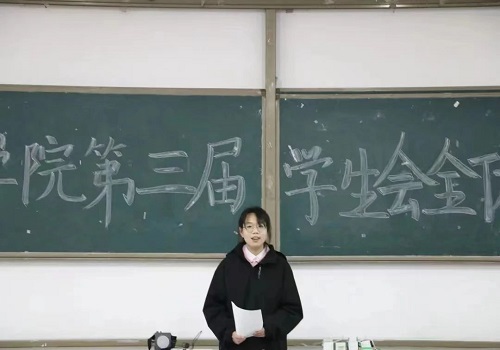 学院第三届 学生会全体